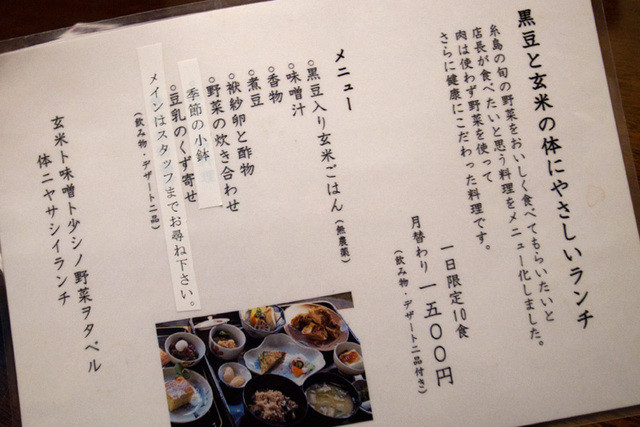 黒豆と玄米の体にやさしいランチ
糸島の旬の野菜をおいしく食べてもらいたいと
店長が食べたいと思う料理をメニュー化しました。
肉は使わず野菜を使って
さらに健康にこだわった料理です。
一日限定10食
月替わり 一五〇〇円
(飲み物・デザート二品付き)
メニュー
○黒豆入り玄米ごはん(無農薬)
○味噌汁
○香物
○煮豆
○袱紗卵と酢物
○野菜の炊き合わせ
季節の小鉢
○豆乳のくず寄せ
メインはスタッフまでお尋ね下さい。
(飲み物・デザート二品)
玄米ト味噌ト少シノ野菜ヲタベル
体ニヤサシイランチ